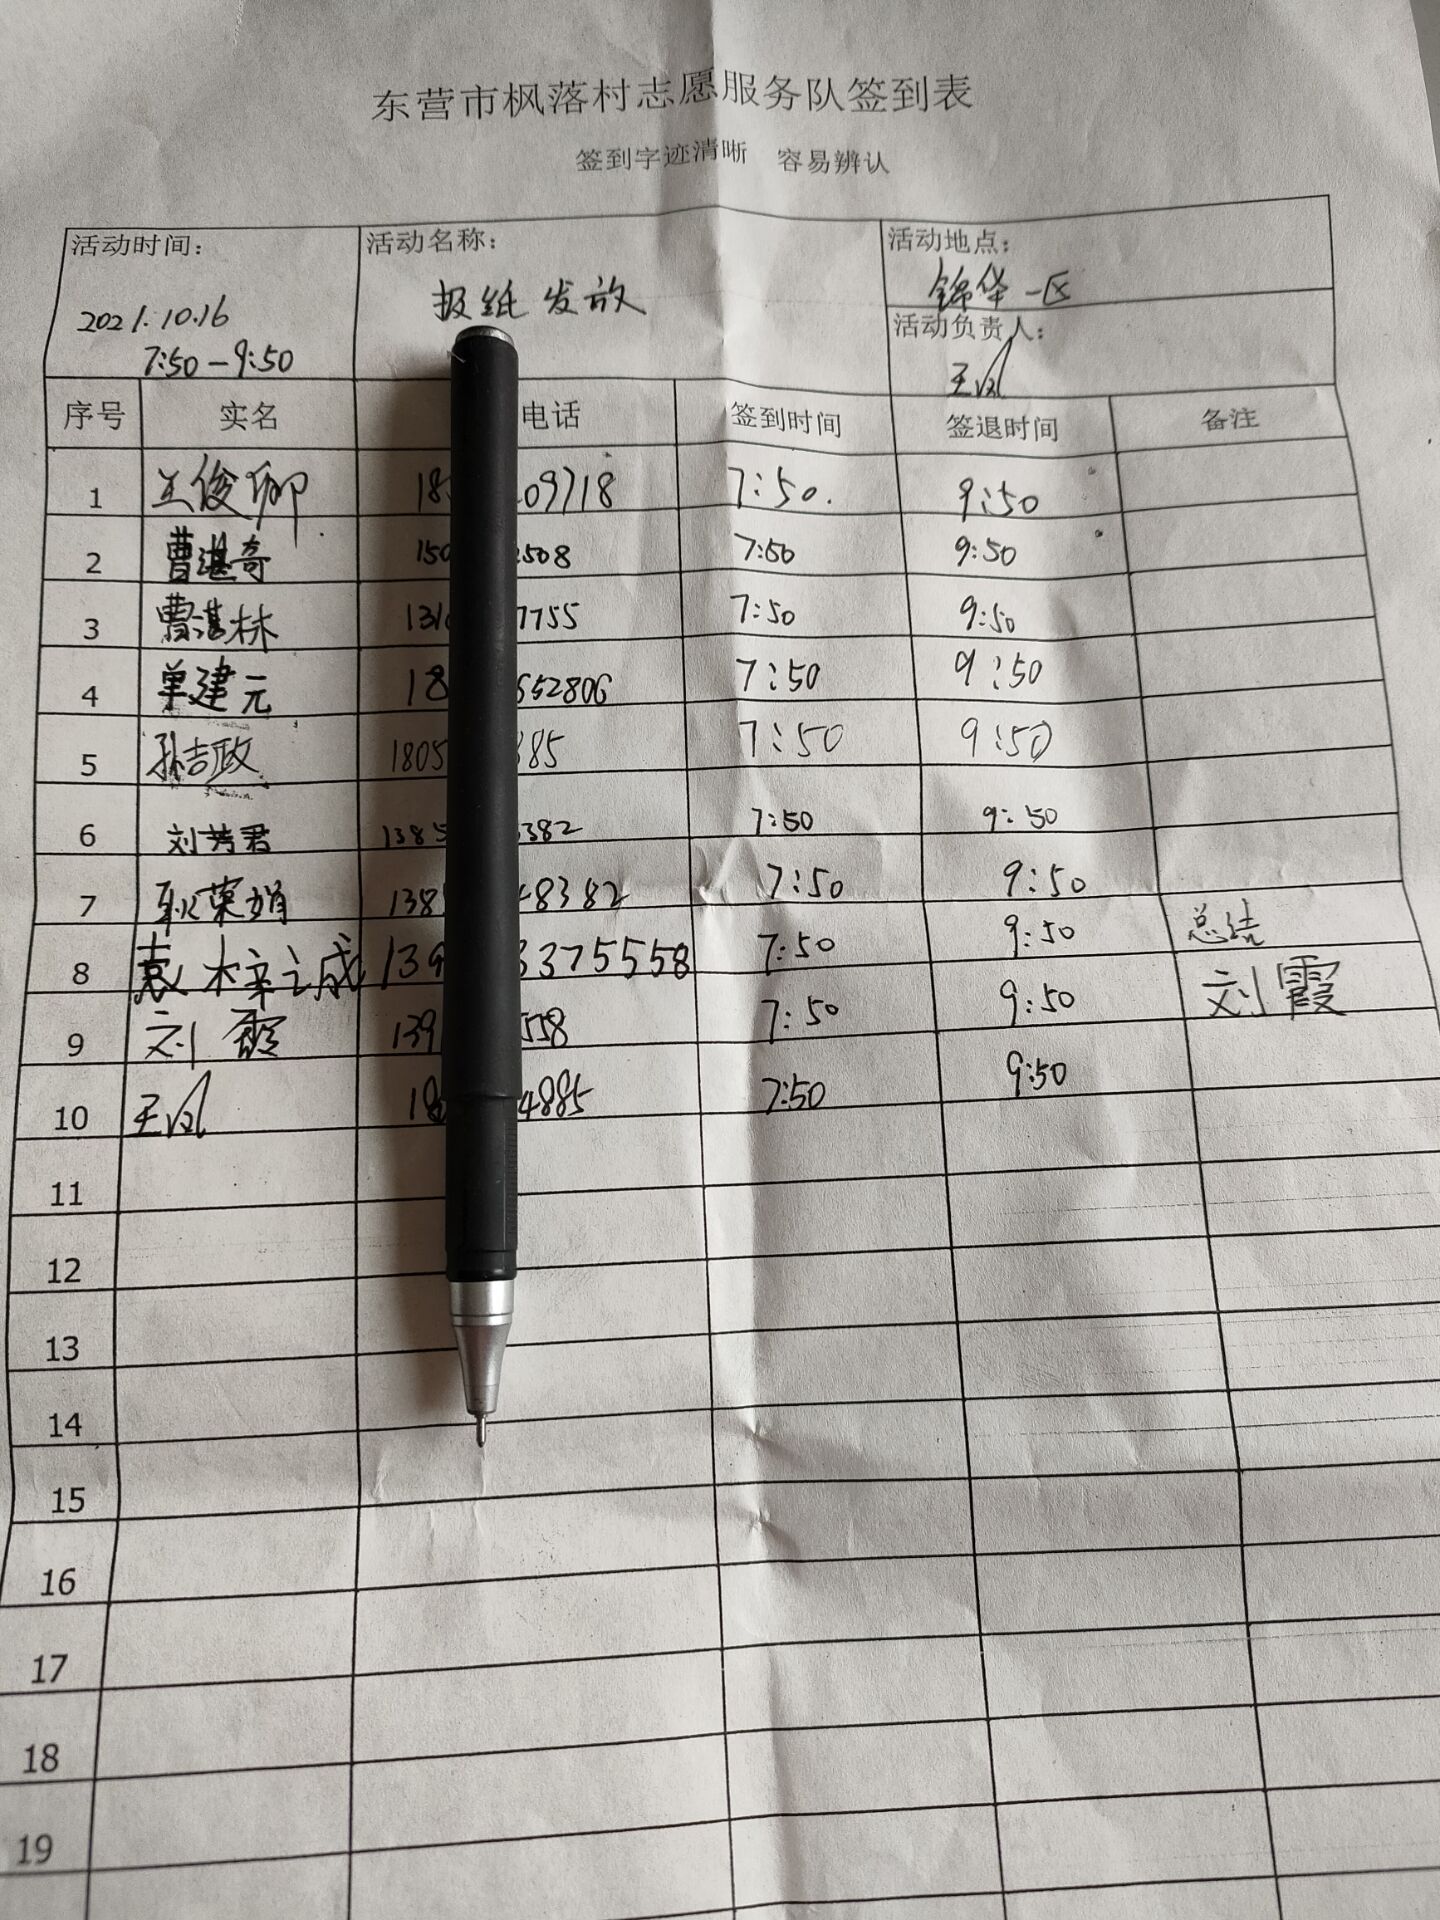 东营市枫落村志愿服务队签到表
签到字迹清晰 容易辨认
活动时间: 活动名称: 活动地点:
报纸发放 锦华一区
2021.10.16
7:50-9:50
活动负责人:
王凤
序号 实名 电话 签到时间 签退时间 备注
1 王俊卿 18 09718 7:50. 9:50
2 曹湛奇 150 508 7:50 9:50
3 曹湛林 131 7755 7:50 9:50
4 单建元 18 652806 7:50 9:50
5 孙吉政 1805 385 7:50 9:50
6 刘芳君 1385 382 7:50 9:50
7 耿荣娟 138 48382 7:50 9:50
8 袁梓之成 139 3375558 7:50 9:50 总结
9 刘霞 139 558 7:50 9:50 刘霞
10 王凤 18 4885 7:50 9:50
11
12
13
14
15
16
17
18
19